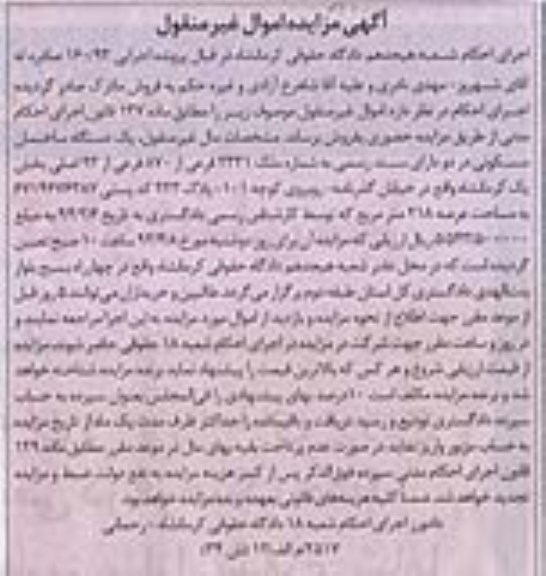 آگهی مزایده اموال غیر منقول
اجرای احکام شعبه هیجدهم دادگاه حقوقی کرمانشاه در قبال پرونده اجرایی ۱۶۰/۹۳ صادره له
آقای شهریور - مهدی نادری و علیه آقا شاهرخ آزادی و غیره حکم به فروش ماترک صادر گردیده
اجرای احکام در نظر دارد اموال غیر منقول موصوف زیر را مطابق ماده ۱۳۷ قانون اجرای احکام
مدنی از طریق مزایده حضوری بفروش برساند. مشخصات مال غیر منقول، یک دستگاه ساختمان
مسکونی در دو دارای سند رسمی به شماره ملک ۳۳۳۱ فرعی از ۸۷۰ فرعی از ۹۳ اصلی بخش
یک کرمانشاه واقع در خیابان روبروی کوچه ۱۰۱ پلاک ۲۳۳ کد پستی
به مساحت عرصه ۲۱۸ متر مربع که توسط کارشناس رسمی دادگستری به تاریخ به مبلغ
ریال ارزیابی که مزایده آن برای روز دوشنبه مورخ ساعت ۱۰ صبح تعیین
گردیده است که در محل دفتر شعبه هیجدهم دادگاه حقوقی کرمانشاه واقع در چهارراه بسیج بلوار
دادگستری کل استان طبقه دوم برگزار می گردد. طالبین و خریداران می توانند ۵ روز قبل
از موعد مقرر جهت اطلاع از نحوه مزایده و بازدید از اموال مورد مزایده به این اجرا مراجعه نمایند و
در روز و ساعت مقرر جهت شرکت در مزایده در اجرای احکام شعبه ۱۸ حقوقی حاضر شوند. مزایده
از قیمت ارزیابی شروع و هر کس که بالاترین قیمت را پیشنهاد نماید برنده مزایده شناخته خواهد
شد و برنده مزایده مکلف است ۱۰ درصد بهای پیشنهادی را فی المجلس بعنوان سپرده به حساب
سپرده دادگستری تودیع و رسید دریافت و باقیمانده را حداکثر ظرف مدت یک ماه از تاریخ مزایده
به حساب مزبور واریز نماید در صورت عدم پرداخت بقیه بهای مال در موعد مقرر مطابق ماده ۱۲۹
قانون اجرای احکام مدنی سپرده فوق الذکر پس از کسر هزینه مزایده به نفع دولت ضبط و مزایده
تجدید خواهد شد. ضمناً کلیه هزینه های قانونی بعهده برنده مزایده خواهد بود.
دادورز اجرای احکام شعبه ۱۸ دادگاه حقوقی کرمانشاه - رحمانی